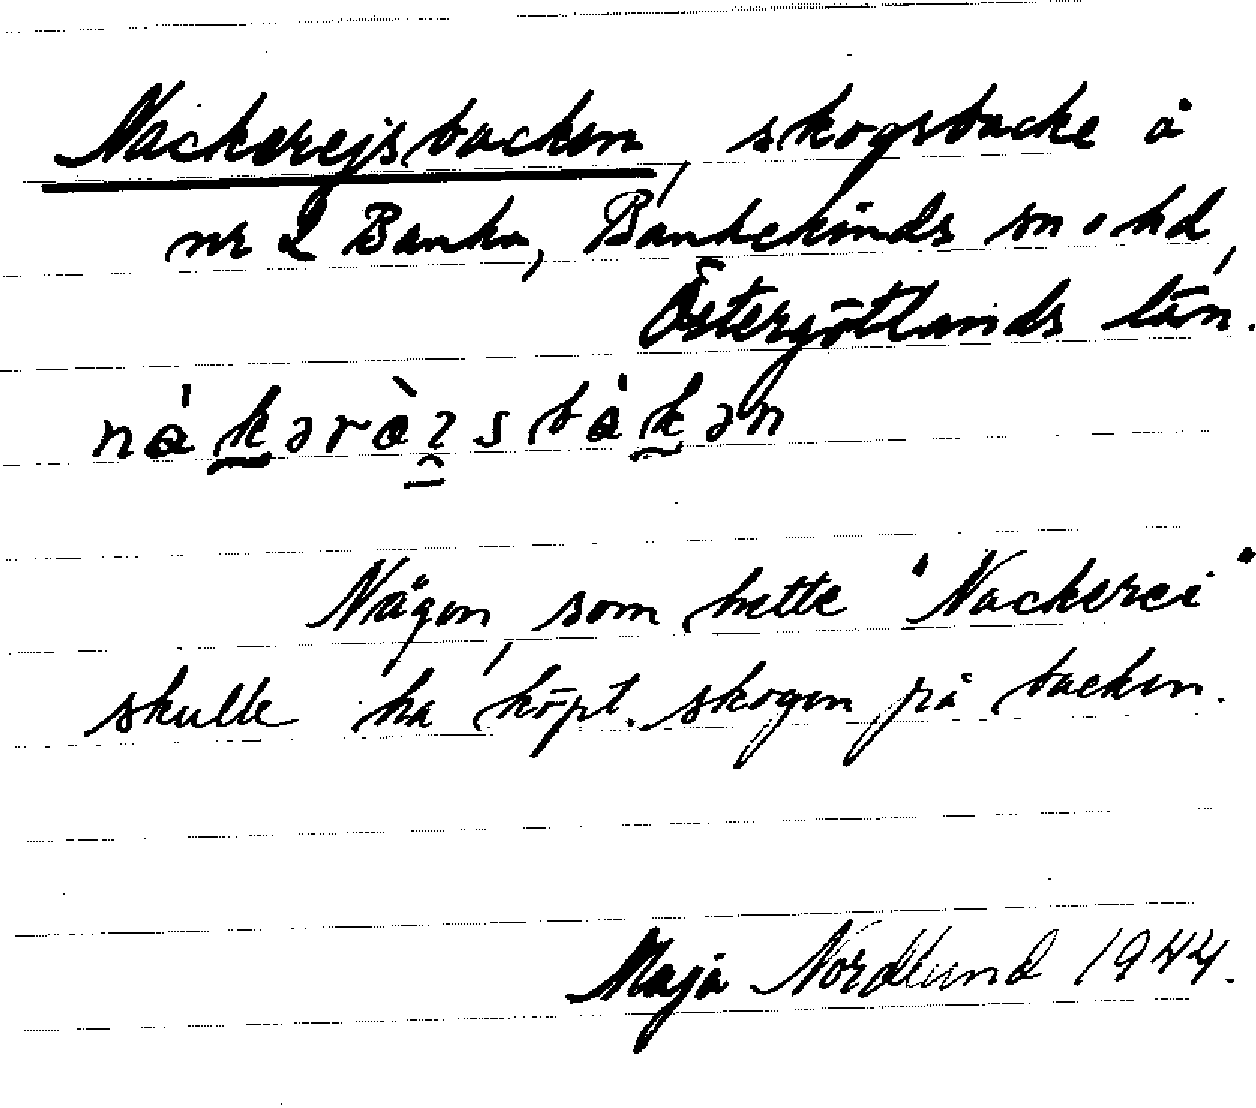 Nackerejsbacken, skogsbacke å
nr 2 Banka, Bankekinds sn o hd,
Östergötlands län.
Någon, som hette "Nackerei"
skulle ha köpt skogen på backen.
Maja Nordlund 1944.